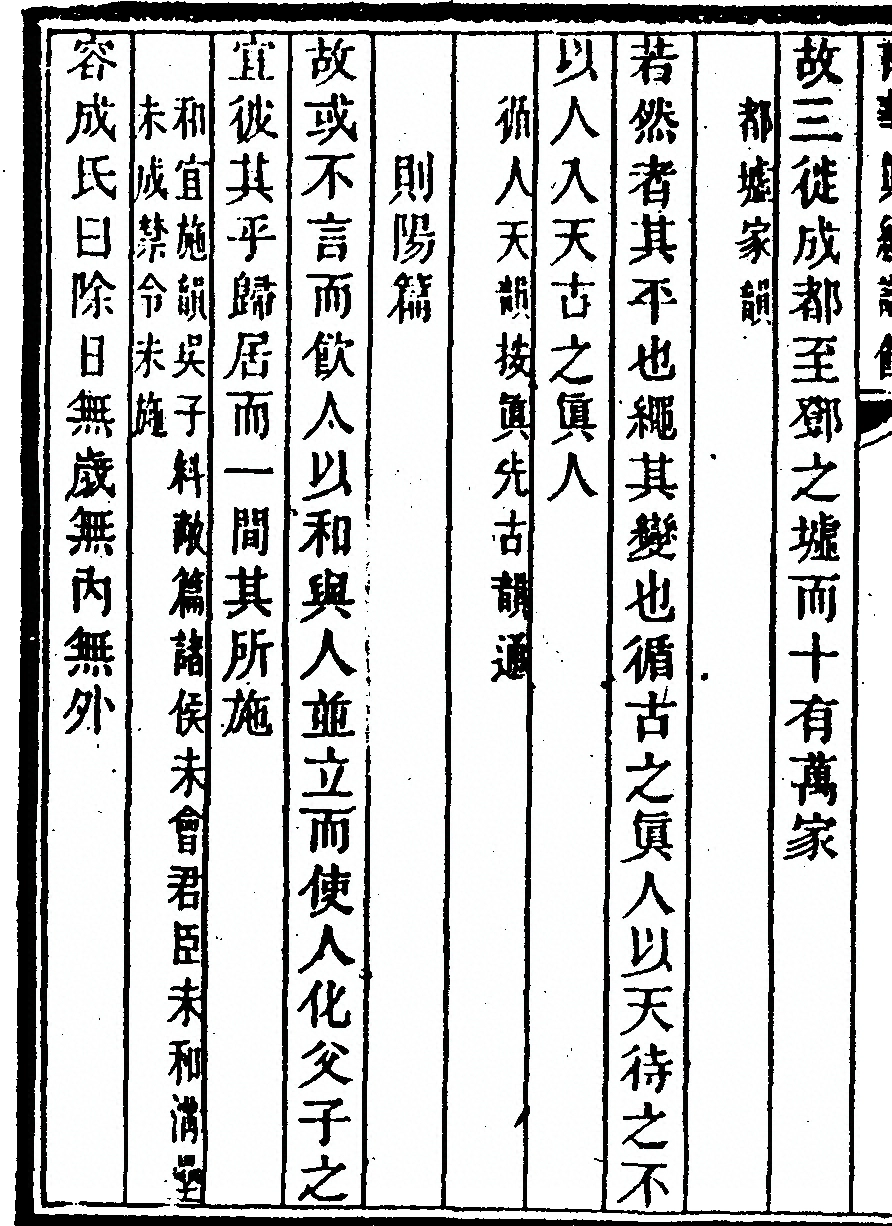 故三徙成都至鄧之墟而十有萬家
都墟家韻
若然者其平也繩其變也循古之眞人以天待之不
以人入天古之眞人
循人天韻按眞先古韻通
則陽篇
故或不言而飮人以和與人並立而使人化父子之
宜彼其乎歸居而一間其所施
和宜施韻吳子料敵篇諸侯未會君臣未和溝壘
未成禁令未施
容成氏曰除日無歲無內無外